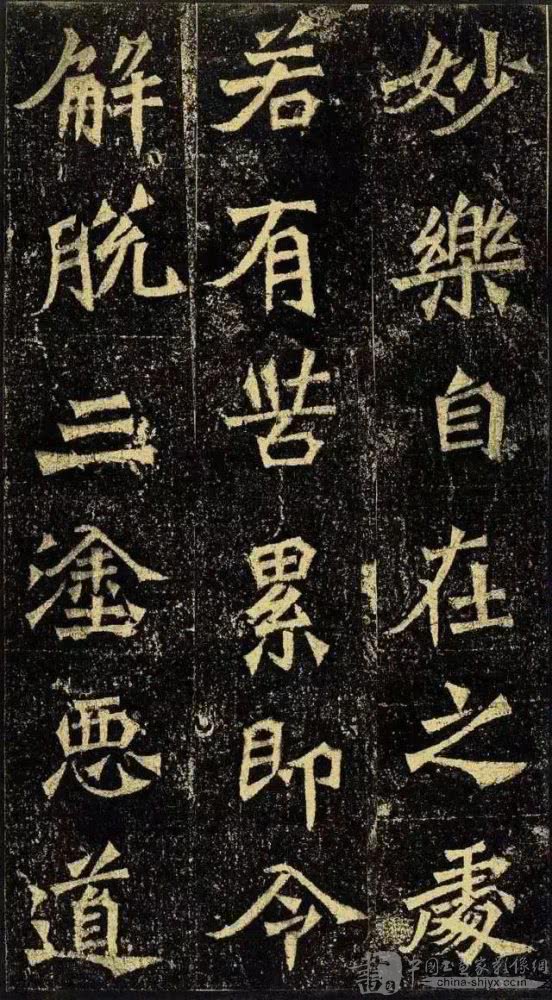 妙樂自在之處
若有苦累即令
解脱三塗惡道
書 中国书画家影像网
china-shjyx.com